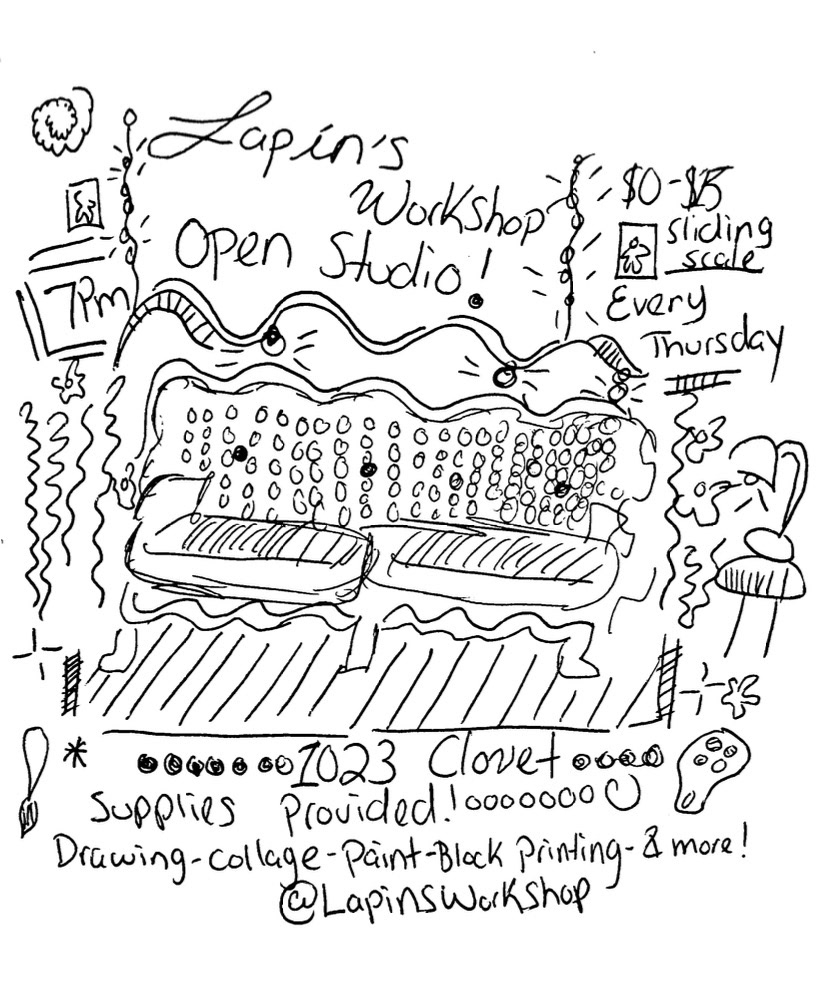 Lapin's
Workshop
Open Studio!
$0-$15
sliding
scale
7pm
Every
Thursday
1023 Clouet
Supplies Provided!
Drawing-collage-Paint-Block Printing-& more!
@LapinsWorkshop